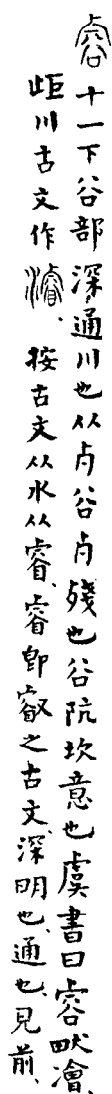 㕡十一下谷部深通川也从卢谷卢残也谷阬坎意也虞書曰㕡畎澮
歫川古文作濬、按古文从水从睿、睿卽叡之古文、深明也、通也、見前、